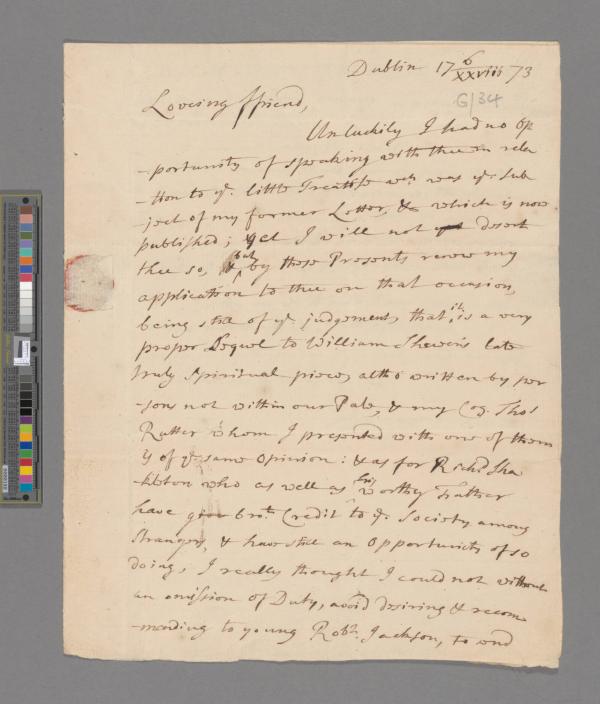 Dublin 17 6/xxviii 73
G/34
Loveing ffriend,
Unluckily I had no op
-portunity of speaking with thee in rela
-tion to ye. little Treatise wch. was ye. sub
ject of my former Letter, & which is now
published; yet I will not desert
thee so, but by these Presents renew my
application to thee on that occasion,
being still of ye. judgement, that it is a very
proper Sequel to William Shewen's late
truly Spiritual piece, altho written by per
-sons not within our Pale, & my Coz. Thos.
Rutter whom I presented with one of them
is of ye. same Opinion: & as for Richd. Sha
-kleton who as well as his worthy Father
have bro.t Credit to ye. Society among
Strangers, & have still an Opportunity of so
doing, I really thought I could not without
an omission of Duty, avoid desiring & recom
-mending to young Robt. Jackson, to send